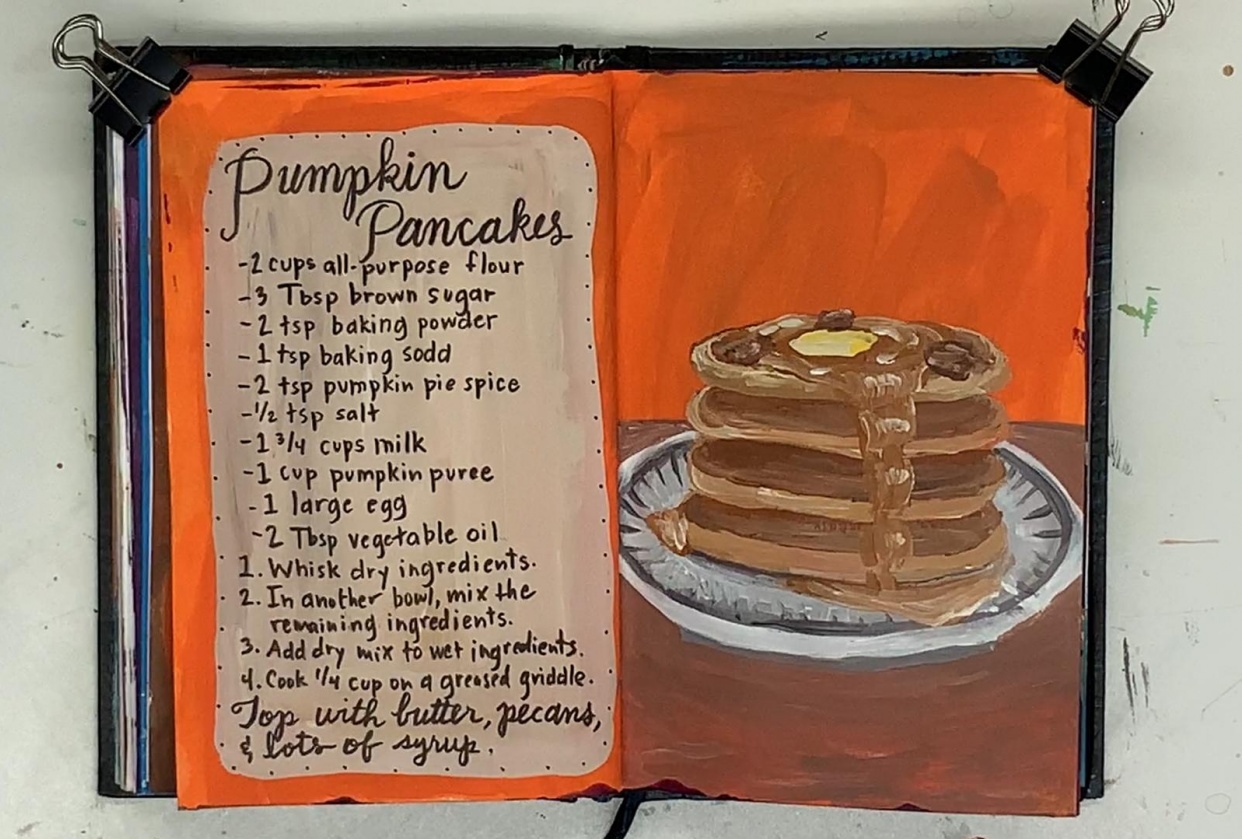 Pumpkin
Pancakes
-2 cups all-purpose flour
-3 Tbsp brown sugar
-2 tsp baking powder
-1 tsp baking sodd
-2 tsp pumpkin pie spice
-1/2 tsp salt
-1 3/4 cups milk
-1 cup pumpkin puree
-1 large egg
-2 Tbsp vegetable oil
1. Whisk dry ingredients.
2. In another bowl, mix the
remaining ingredients.
3. Add dry mix to wet ingredients.
4. Cook 1/4 cup on a greased griddle.
Top with butter, pecans,
& lots of syrup.